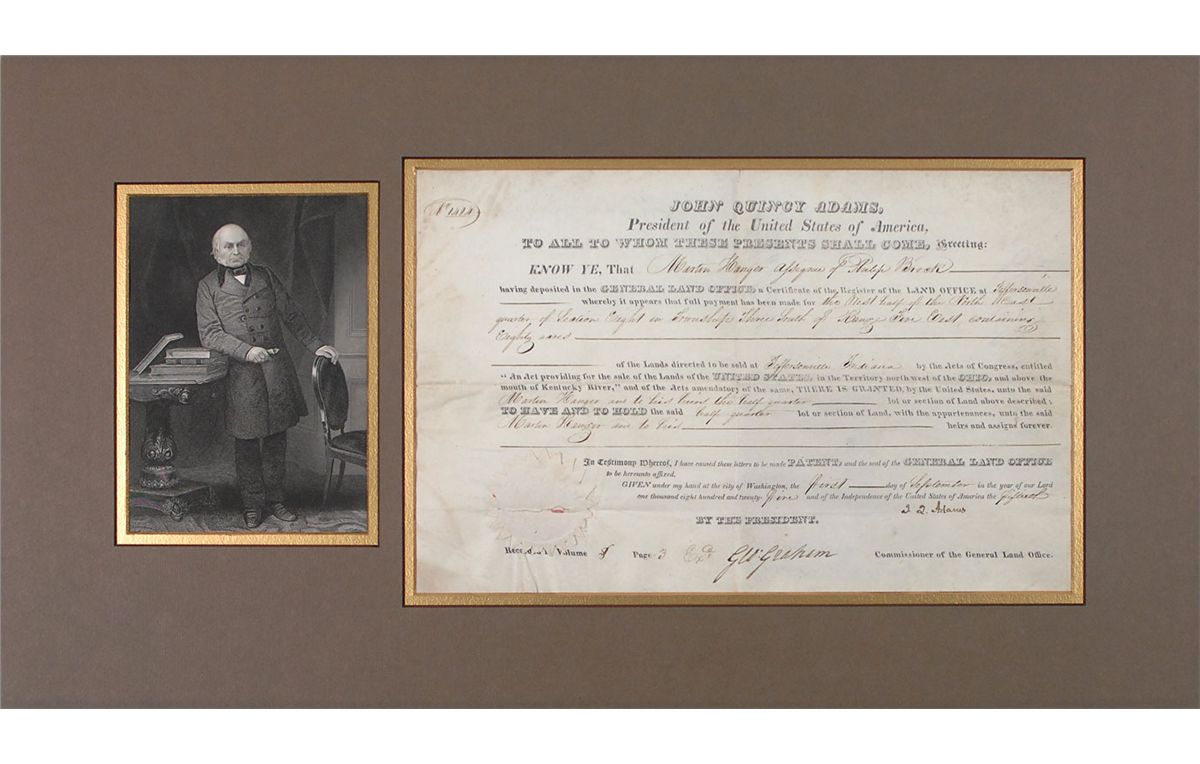 No 1424
JOHN QUINCY ADAMS,
President of the United States of America,
TO ALL TO WHOM THESE PRESENTS SHALL COME, Greeting:
KNOW YE, That Martin Hanger Assignee of Philip Brock
having deposited in the GENERAL LAND OFFICE, a Certificate of the Register of the LAND OFFICE at Jeffersonville
whereby it appears that full payment has been made for the West half of the North East
quarter of Section Eight in Township Three South of Range Five East, containing
Eighty acres
of the Lands directed to be sold at Jeffersonville Indiana by the Acts of Congress, entitled
"An Act providing for the sale of the Lands of the UNITED STATES, in the Territory northwest of the OHIO, and above the
mouth of Kentucky River," and of the Acts amendatory of the same, THERE IS GRANTED, by the United States, unto the said
Martin Hanger and to his heirs the half quarter lot or section of Land above described;
TO HAVE AND TO HOLD the said half quarter lot or section of Land, with the appurtenances, unto the said
Martin Hanger and to his heirs and assigns forever.
In Testimony Whereof, I have caused these letters to be made PATENT, and the seal of the GENERAL LAND OFFICE
to be hereunto affixed.
GIVEN under my hand at the city of Washington, the first day of September in the year of our Lord
one thousand eight hundred and twenty-five and of the Independence of the United States of America the fiftieth
J. Q. Adams
BY THE PRESIDENT.
Recorded, Volume Page 3 Exd Geo Graham Commissioner of the General Land Office.